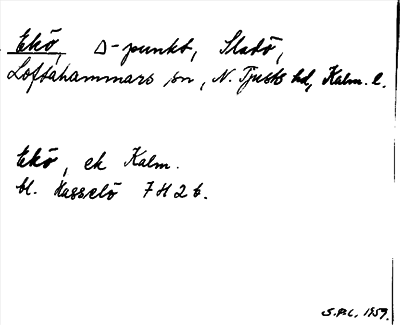 Ekö, Δ-punkt, Sladö,
Loftahammars sn, N. Tjusts hd, Kalm. l.
Ekö, ek Kalm.
bl. Hasselö 7H2b.
S.P.C. 1959.